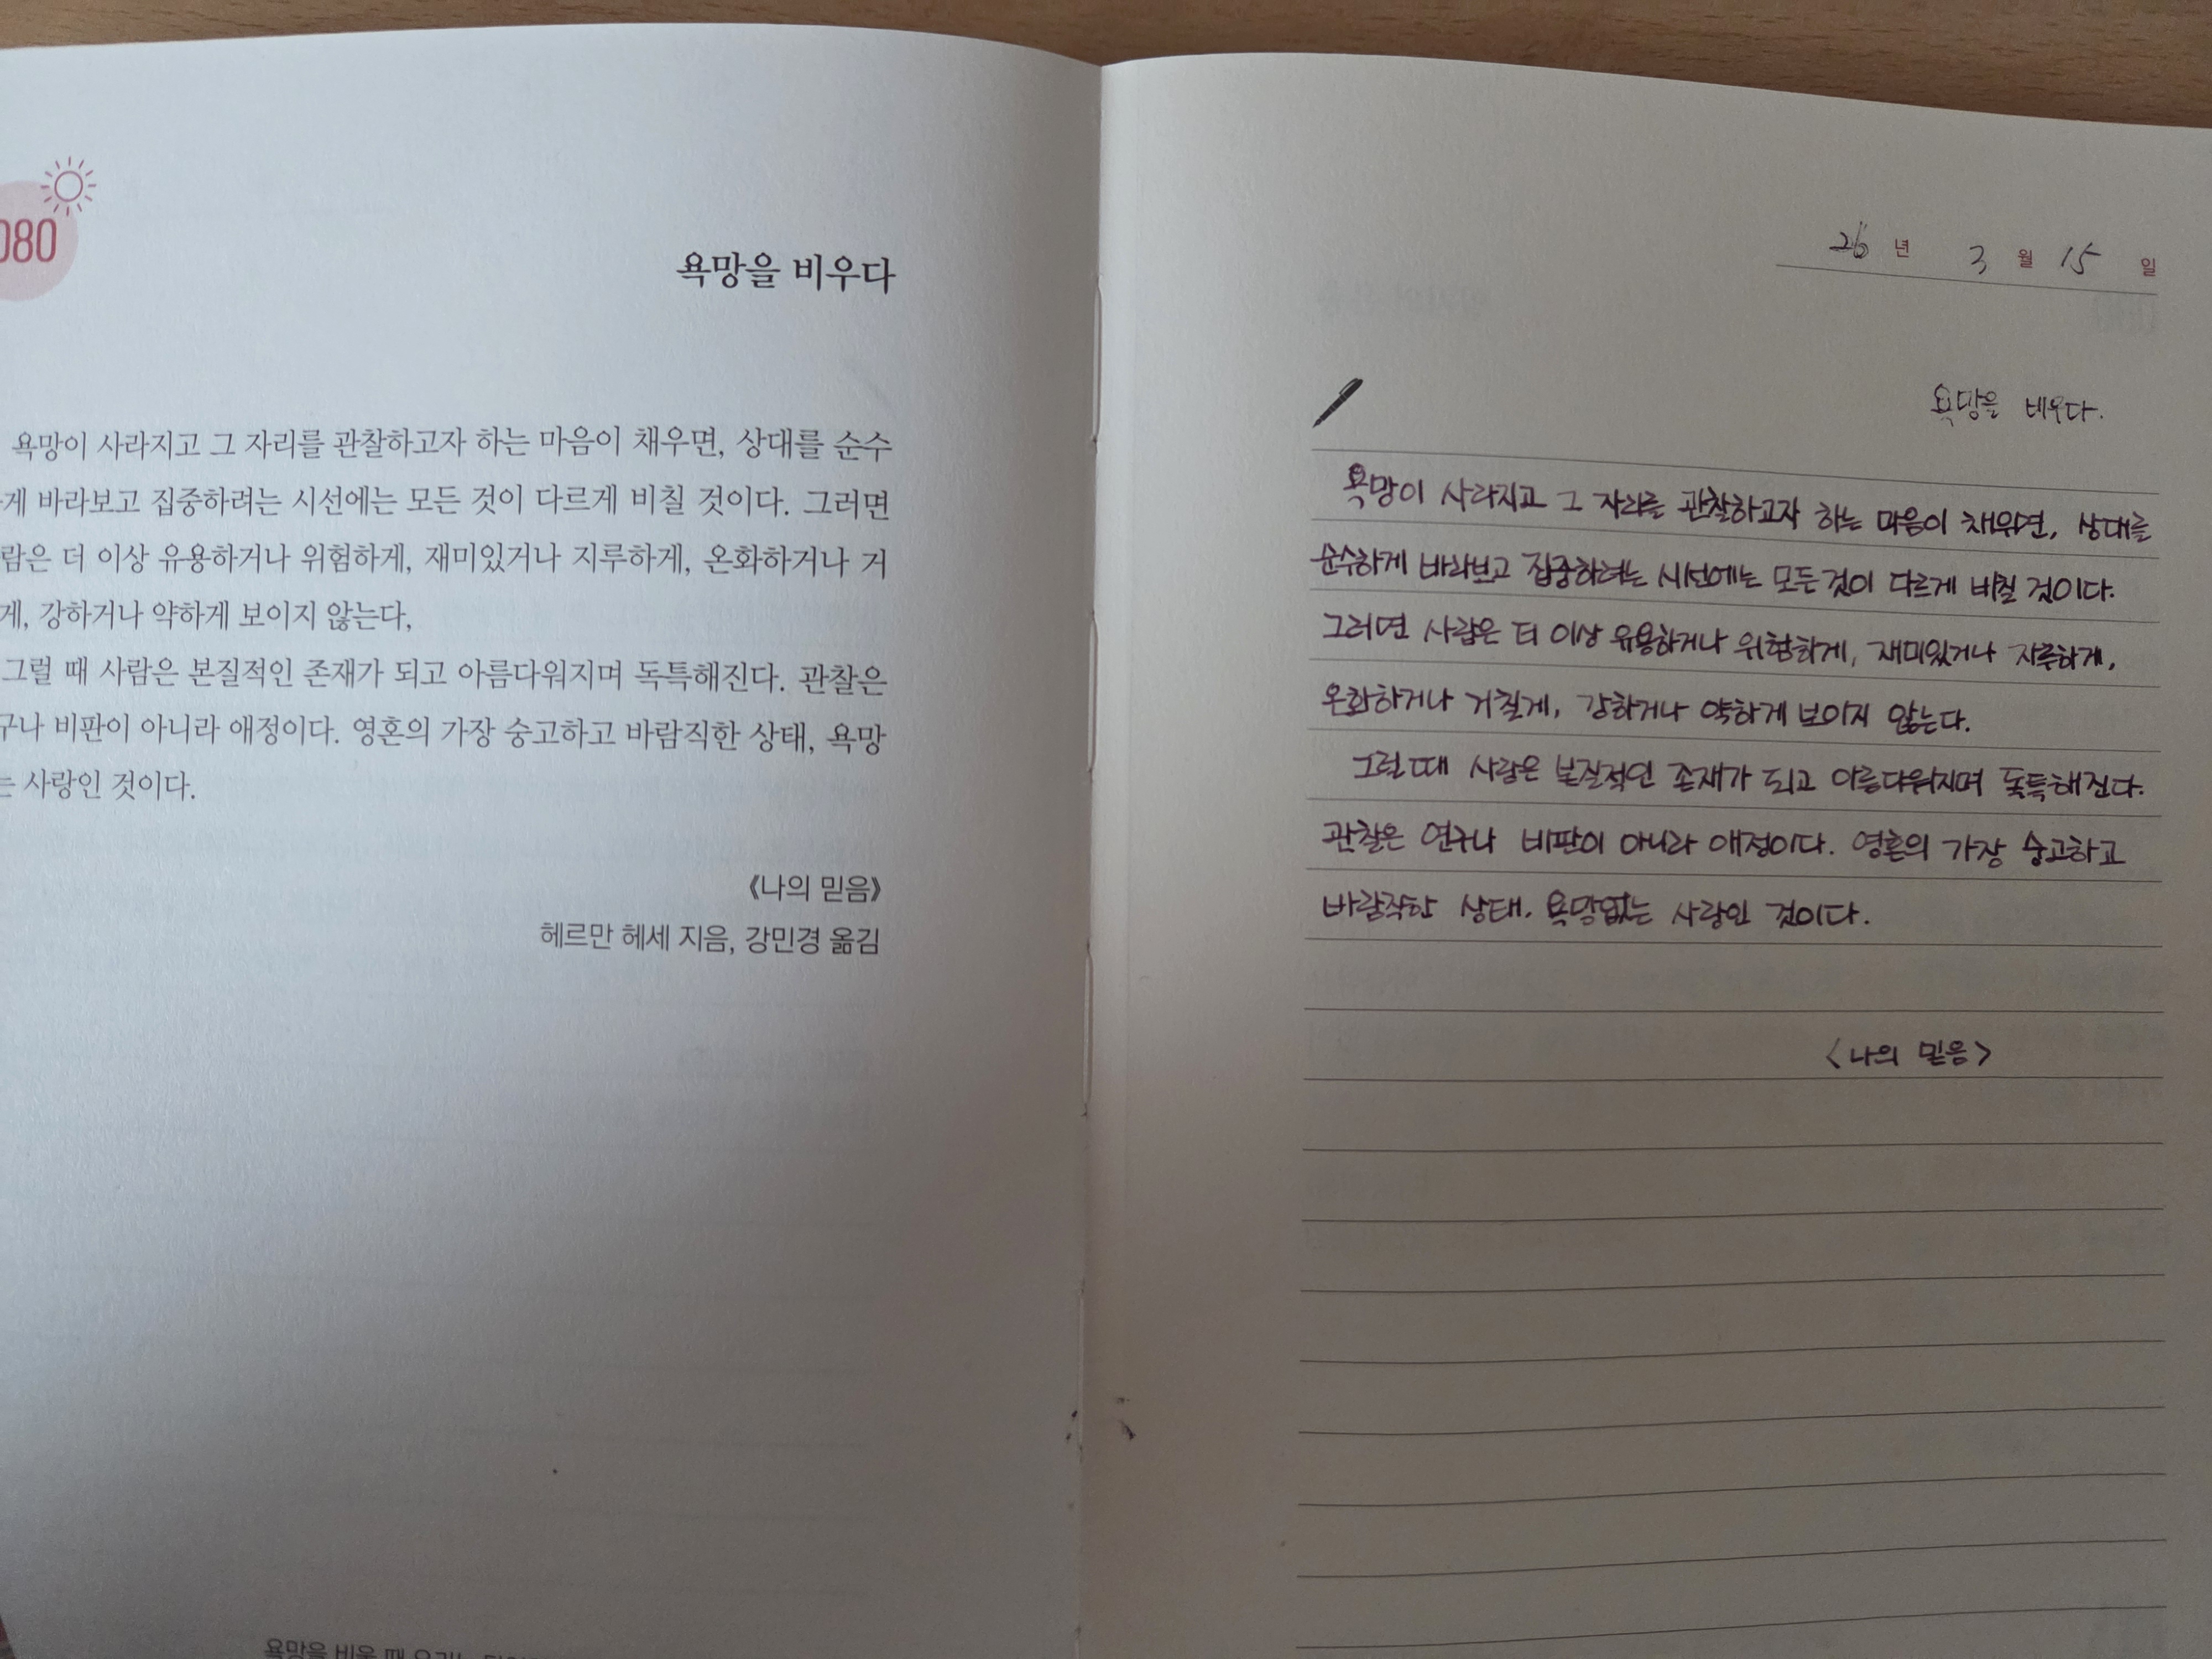 080
욕망을 비우다
욕망이 사라지고 그 자리를 관찰하고자 하는 마음이 채우면, 상대를 순수
게 바라보고 집중하려는 시선에는 모든 것이 다르게 비칠 것이다. 그러면
람은 더 이상 유용하거나 위험하게, 재미있거나 지루하게, 온화하거나 거
게, 강하거나 약하게 보이지 않는다,
그럴 때 사람은 본질적인 존재가 되고 아름다워지며 독특해진다. 관찰은
구나 비판이 아니라 애정이다. 영혼의 가장 숭고하고 바람직한 상태, 욕망
는 사랑인 것이다.
《나의 믿음》
헤르만 헤세 지음, 강민경 옮김
욕망을 비울 때 우리는
26 년 3 월 15 일
욕망을 비우다.
욕망이 사라지고 그 자리를 관찰하고자 하는 마음이 채우면, 상대를
순수하게 바라보고 집중하려는 시선에는 모든것이 다르게 비칠 것이다.
그러면 사람은 더 이상 유용하거나 위험하게, 재미있거나 지루하게,
온화하거나 거칠게, 강하거나 약하게 보이지 않는다.
그럴때 사람은 본질적인 존재가 되고 아름다워지며 독특해진다.
관찰은 연구나 비판이 아니라 애정이다. 영혼의 가장 숭고하고
바람직한 상태. 욕망없는 사랑인 것이다.
<나의 믿음>